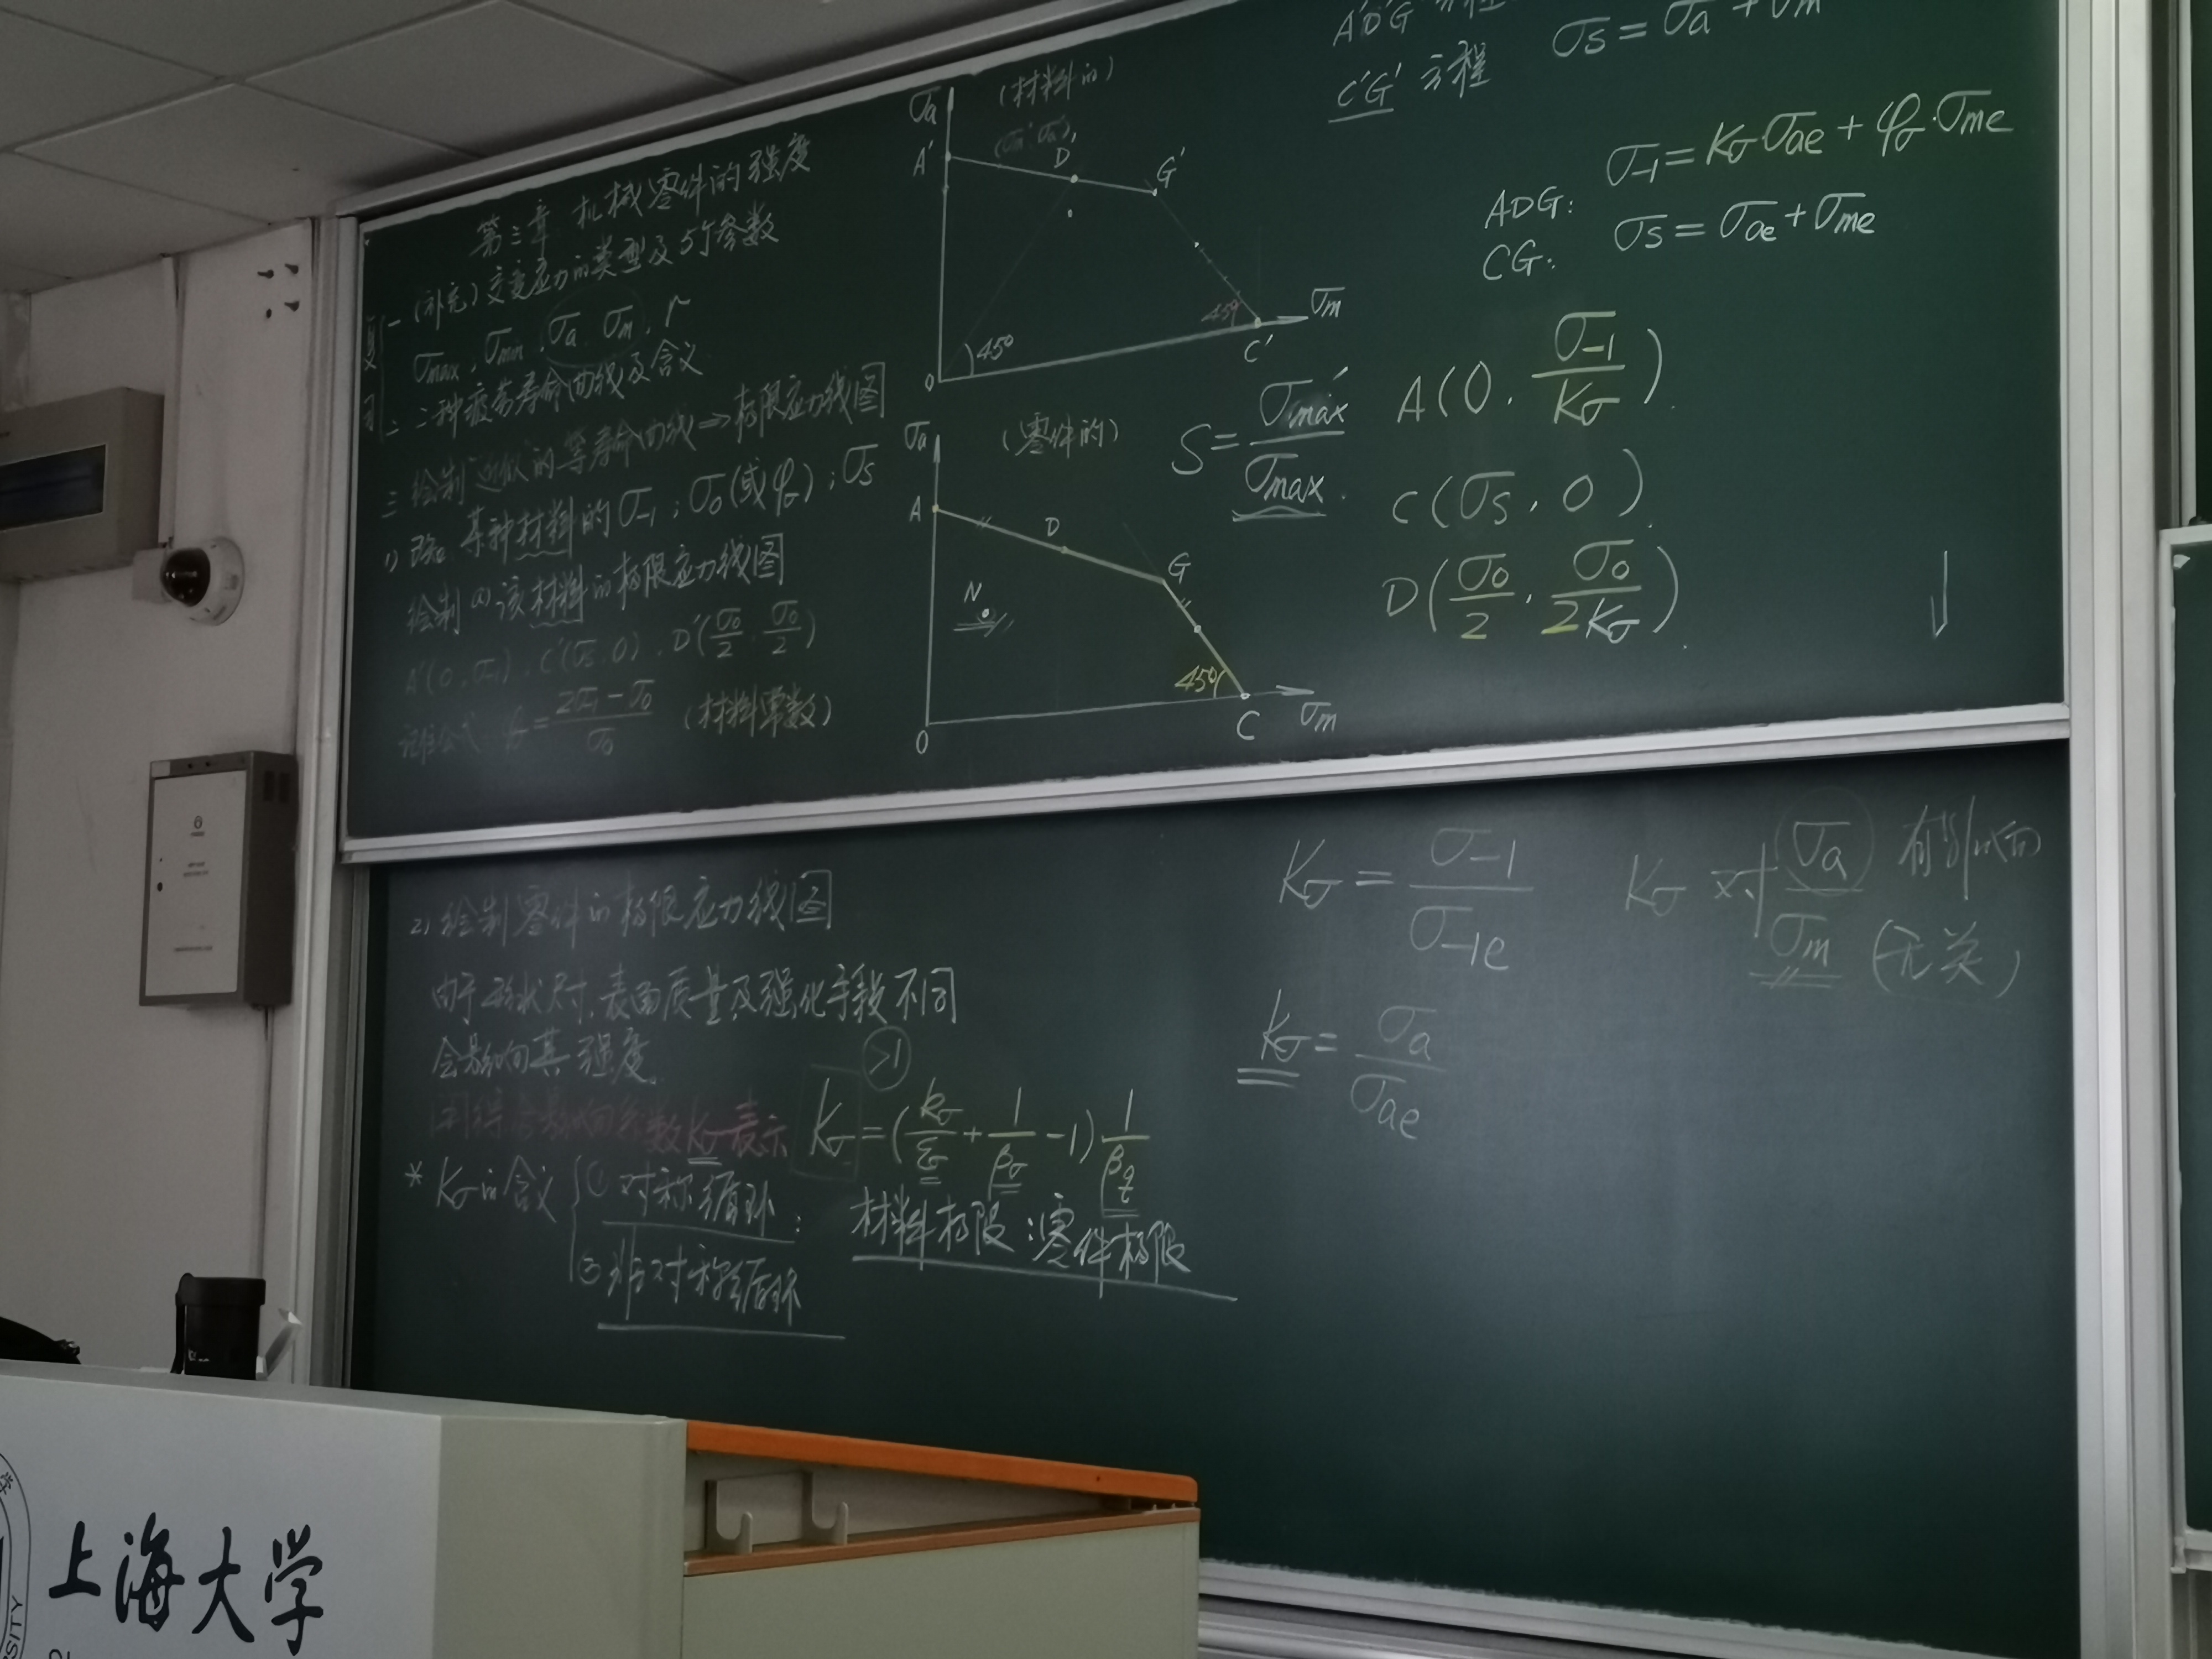 第三章 机械零件的强度
复习
一 (补充) 交变应力的类型及5个参数
σmax, σmin, σa, σm, r
二 二种疲劳寿命曲线及含义
三 绘制近似的等寿命曲线⇒极限应力线图
1) 已知 某种材料的σ-1; σ0(或φσ); σs
绘制 该材料的极限应力线图
A'(0, σ-1), C'(σs, 0), D'(σ0/2, σ0/2)
φσ = (2σ-1 - σ0)/σ0 (材料常数)
σa (材料的)
(σm', σa')
A' D' G'
45° 45°
O C' σm
σa (零件的)
A D G
N
45°
O C σm
S = σmax'/σmax
A'D'G' 方程
C'G' 方程 σs = σa' + σm'
σ-1 = Kσ·σae + φσ·σme
ADG:
CG: σs = σae + σme
A(0, σ-1/Kσ)
C(σs, 0)
D(σ0/2, σ0/2Kσ)
2) 绘制零件的极限应力线图
由于形状尺寸,表面质量及强化手段不同
会影响其强度.
用综合影响系数Kσ表示 Kσ = (kσ/εσ + 1/βσ - 1) 1/βq
>1
* Kσ的含义 ① 对称循环:
② 非对称循环
材料极限:零件极限
Kσ = σ-1/σ-1e
Kσ 对 σa 有影响
σm (无关)
Kσ = σa/σae
上海大学